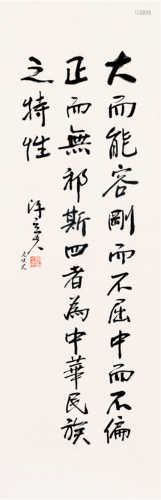 大而能容剛而不屈中而不偏
正而無邪斯四者為中華民族
之特性
陳立夫